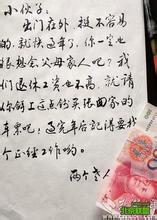 小伙子：
出门在外，挺不容易
的，就快过年了，你一定也
很想念父母家人吧？我
们退休工资也不高，就请
你领上这点钱买张回家的
车票吧，过完年后记得要找
个正经工作哟。
两个老人
100